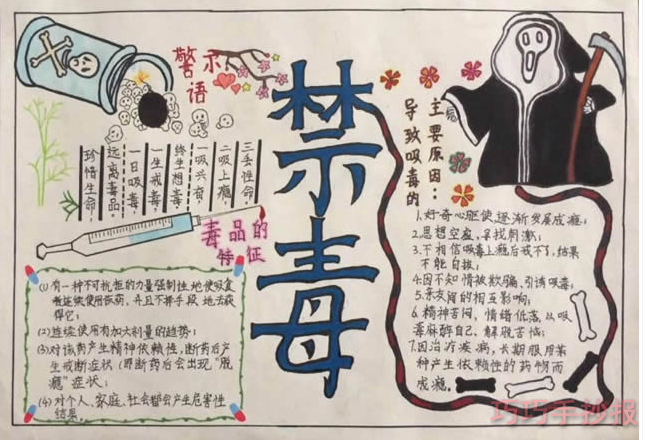 警示
语
珍惜生命,
远离毒品,
一日吸毒,
一生戒毒,
终生想毒,
一吸兴奋,
二吸上瘾,
三丢性命,
禁毒
主要原因:
导致吸毒的
毒品的
特征
(1)有一种不可抗拒的力量强制性地使吸食
者连续使用该药,并且不择手段地去获
得它;
(2)连续使用有加大剂量的趋势;
(3)对该药产生精神依赖性,断药后产
生戒断症状(即断药后会出现"脱
瘾"症状;
(4)对个人、家庭、社会都会产生危害性
结果。
1.好奇心驱使逐渐发展成瘾;
2.思想空虚,寻找刺激;
3.不相信吸毒上瘾后戒不了,结果
不能自拔;
4.因不知情被欺骗、引诱吸毒;
5.亲友间的相互影响;
6.精神苦闷,情绪低落,以吸
毒麻醉自己,解脱苦恼;
7.因治疗疾病,长期服用某
种产生依赖性的药物而
成瘾。
巧巧手抄报